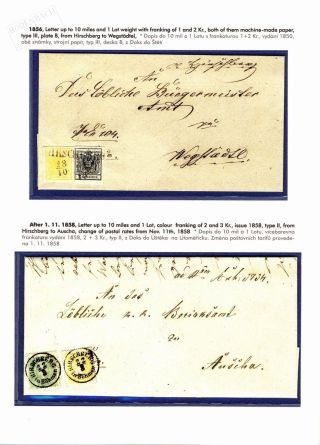 1856, Letter up to 10 miles and 1 Lot weight with franking of 1 and 2 Kr., both of them machine-made paper,
type III, plate 8, from Hirschberg to Wegstädtel, * Dopis do 10 mil a 1 Lotu s frankaturou 1+2 Kr., vydání 1850,
obě známky, strojní papír, typ III, deska 8, z Doks do Štětí
An
Das Löbliche Bürgermeister
Amt
zu
Wegstädtl
HIRSCHB
23
10
After 1. 11. 1858, Letter up to 10 miles and 1 Lot, colour franking of 2 and 3 Kr., issue 1858, type II, from
Hirschberg to Auscha, change of postal rates from Nov. 11th, 1858 * Dopis do 10 mil a 1 Lotu, vícebarevná
frankatura vydání 1858, 2 + 3 Kr., typ II, z Doks do Úštěka na Litoměřicku. Změna poštovních tarifů provede-
na 1. 11. 1858
An das
Löbliche k. k. Bezirksamt
in
Auscha
HIRSCHBERG
HIRSCHBERG